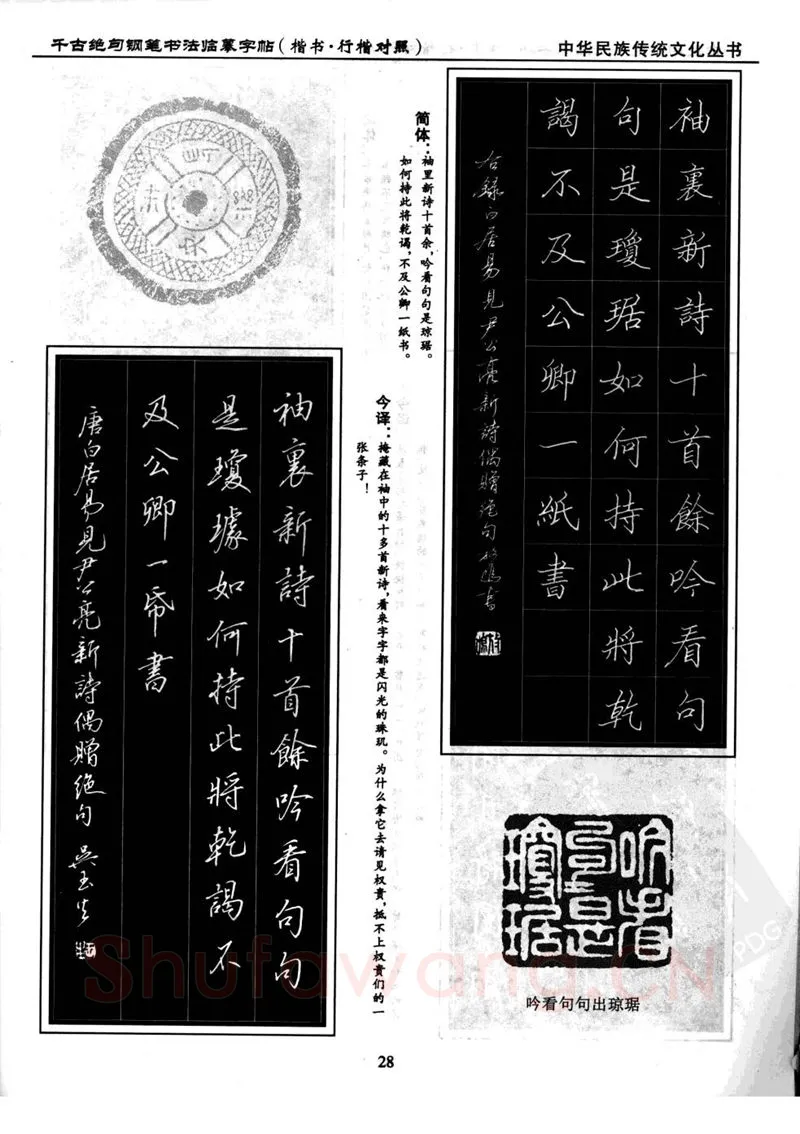 千古绝句钢笔书法临摹字帖（楷书·行楷对照）
中华民族传统文化丛书
袖裏新詩十首餘吟看句
句是瓊琚如何持此將乾
謁不及公卿一紙書
右録白居易見尹公亮新詩偶贈绝句
简体：袖里新诗十首余，吟看句句是琼琚。
如何持此将乾谒，不及公卿一纸书。
今译：掩藏在袖中的十多首新诗，看来字字都是闪光的珠玑。为什么拿它去请见权贵，抵不上权贵们的一
张条子！
袖裏新詩十首餘吟看句句
是瓊璩如何持此將乾謁不
及公卿一帋書
唐白居易見尹公亮新詩偶贈绝句 吳玉生
吟看句句是瓊琚
吟看句句出琼琚
28
Shufawang.CN
PDG